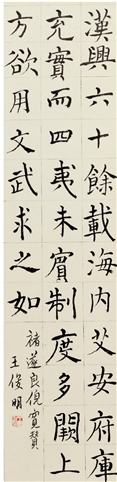 漢興六十餘載海内艾安府庫
充實而四夷未賓制度多闕上
方欲用文武求之如
褚遂良倪寬贊
王俊明